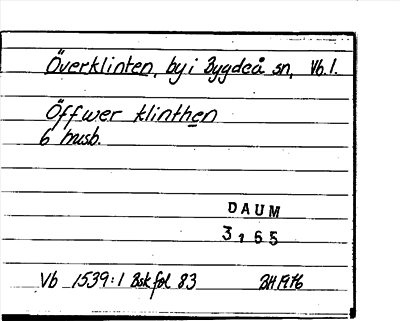 Överklinten, by i Bygdeå sn, Vb. l.
Öffwer klinthen
6 husb.
DAUM
3165
Vb 1539:1 Bsk fol 83